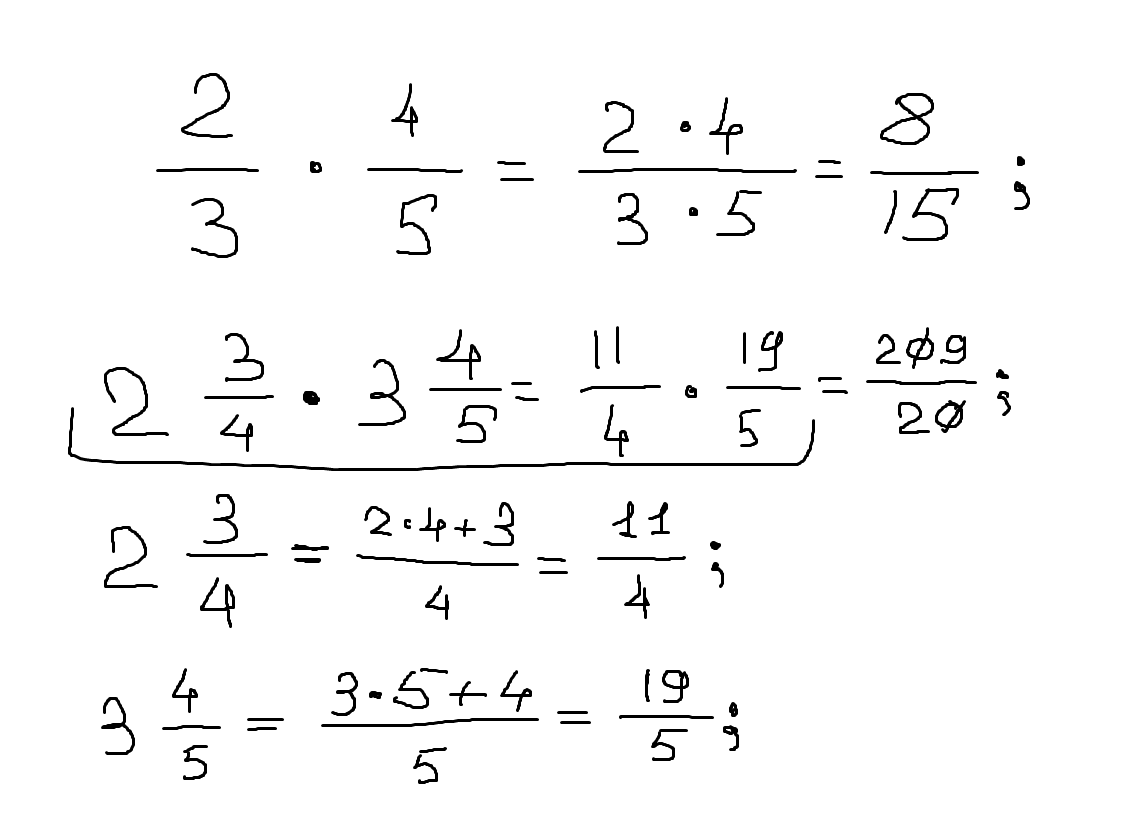 2/3 · 4/5 = 2·4/3·5 = 8/15 ;
2 3/4 · 3 4/5 = 11/4 · 19/5 = 209/20 ;
2 3/4 = 2·4+3/4 = 11/4 ;
3 4/5 = 3·5+4/5 = 19/5 ;